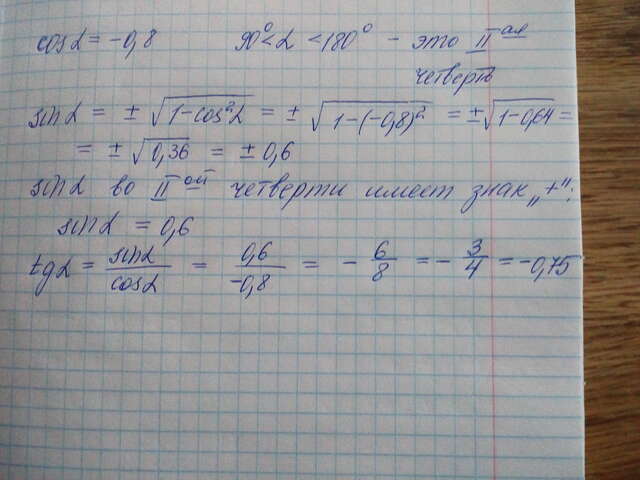 cosα = -0,8 90° < α < 180° - это II ая
четверть
sinα = ± √1-cos²α = ± √1-(-0,8)² = ±√1-0,64 =
= ± √0,36 = ± 0,6
sinα во II ой четверти имеет знак „+":
sinα = 0,6
tgα = sinα/cosα = 0,6/-0,8 = - 6/8 = - 3/4 = -0,75